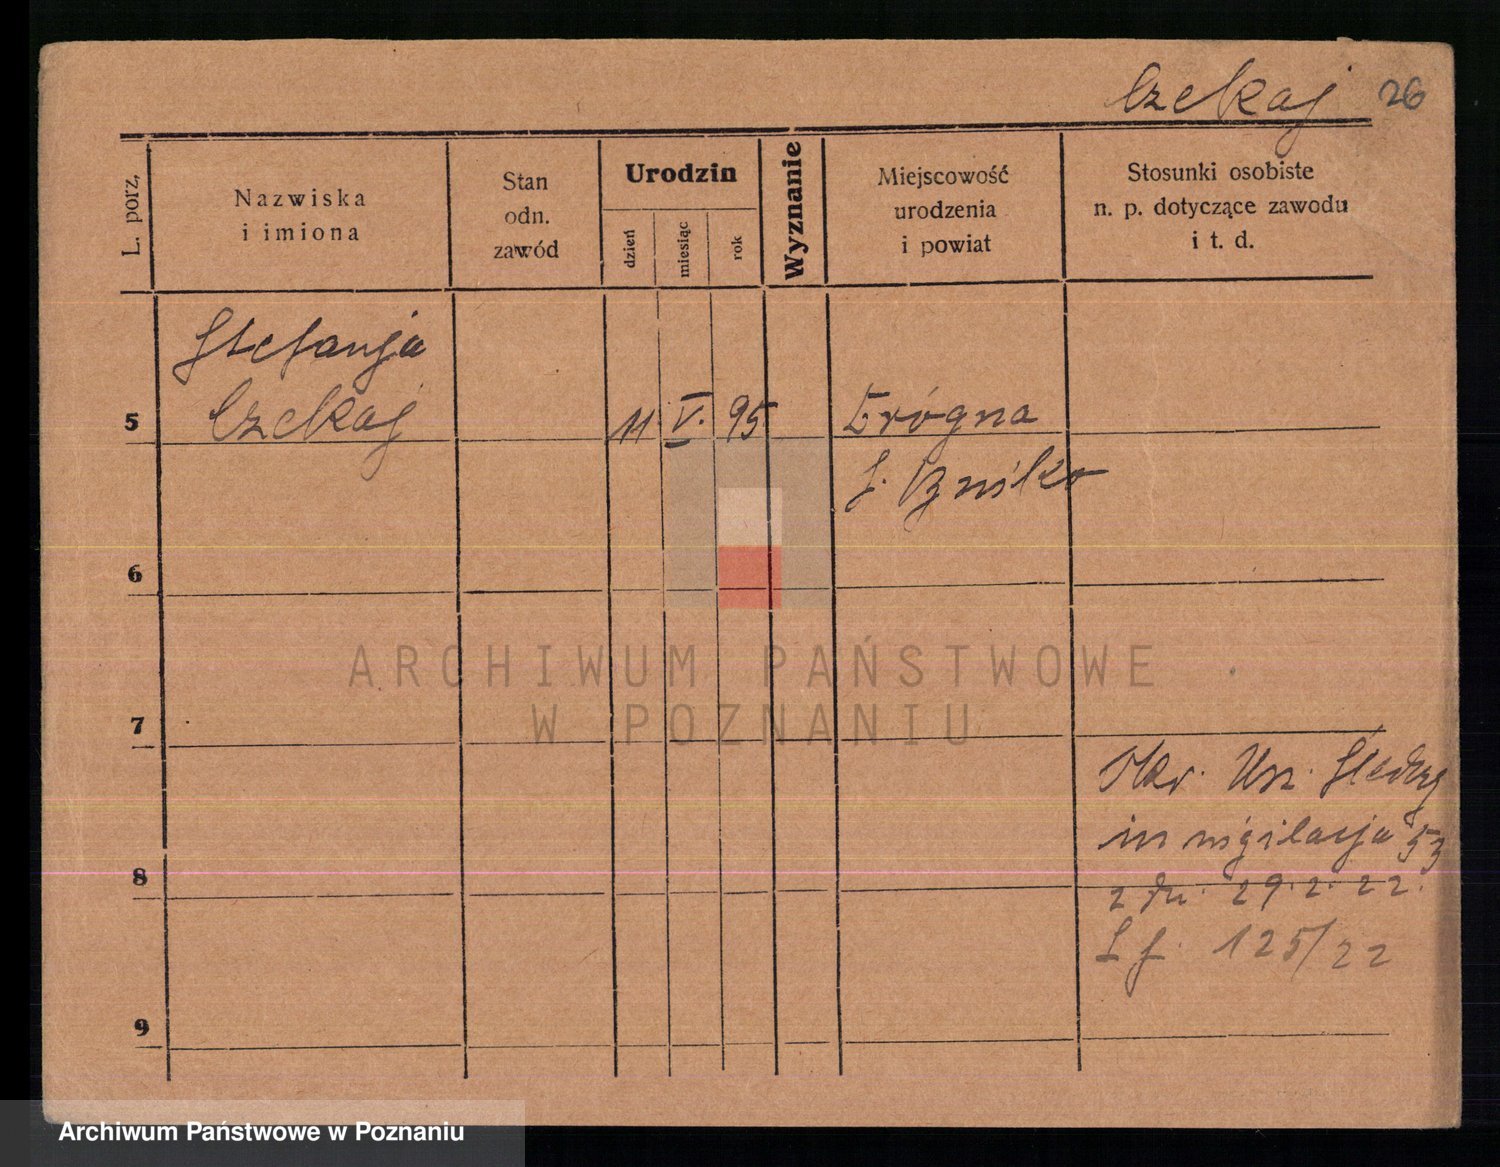 Czekaj 26
L. porz,
Nazwiska
i imiona
Stan
odn.
zawód
Urodzin
dzień
miesiąc
rok
Wyznanie
Miejscowość
urodzenia
i powiat
Stosunki osobiste
n. p. dotyczące zawodu
i t. d.
Stefanja
5 Czekaj 11 V. 95
6
7
in wigilacja 53
8
z dn. 29.2.22.
L.j. 125/22
9
ARCHIWUM PAŃSTWOWE
W POZNANIU
Archiwum Państwowe w Poznaniu